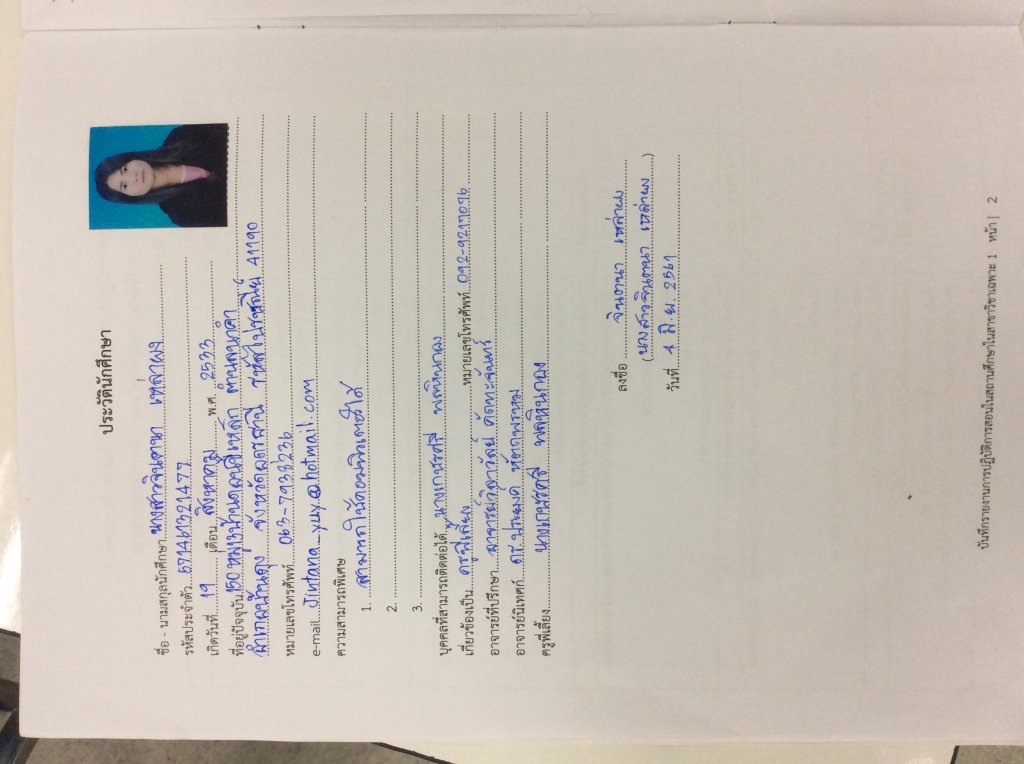 ประวัตินักศึกษา
ชื่อ - นามสกุลนักศึกษา นางสาวจินตนา เหล่าผง
รหัสประจำตัว 571461321477
เกิดวันที่ 19 เดือน สิงหาคม พ.ศ. 2533
ที่อยู่ปัจจุบัน 150 หมู่ 3 บ้านดอนขี้เหล็ก ตำบลนาคำ
อำเภอบ้านดุง จังหวัดอุดรธานี รหัสไปรษณีย์ 41190
หมายเลขโทรศัพท์ 063-7913236
e-mail Jintana_yuy@hotmail.com
ความสามารถพิเศษ
1. สามารถใช้คอมพิวเตอร์ได้
2.
3.
บุคคลที่สามารถติดต่อได้ นางเกษรศรี พลหินกอง
เกี่ยวข้องเป็น ครูพี่เลี้ยง หมายเลขโทรศัพท์ 092-9217076
อาจารย์ที่ปรึกษา อาจารย์วิลาวัลย์
อาจารย์นิเทศก์ ดร.ประยงค์ หัตถพรหม
ครูพี่เลี้ยง นางเกษรศรี พลหินกอง
ลงชื่อ จินตนา เหล่าผง
(นางสาวจินตนา เหล่าผง)
วันที่ 4 มิ.ย. 2561
บันทึกรายงานการปฏิบัติการสอนในสถานศึกษาในสาขาวิชาเฉพาะ 1 หน้า | 2